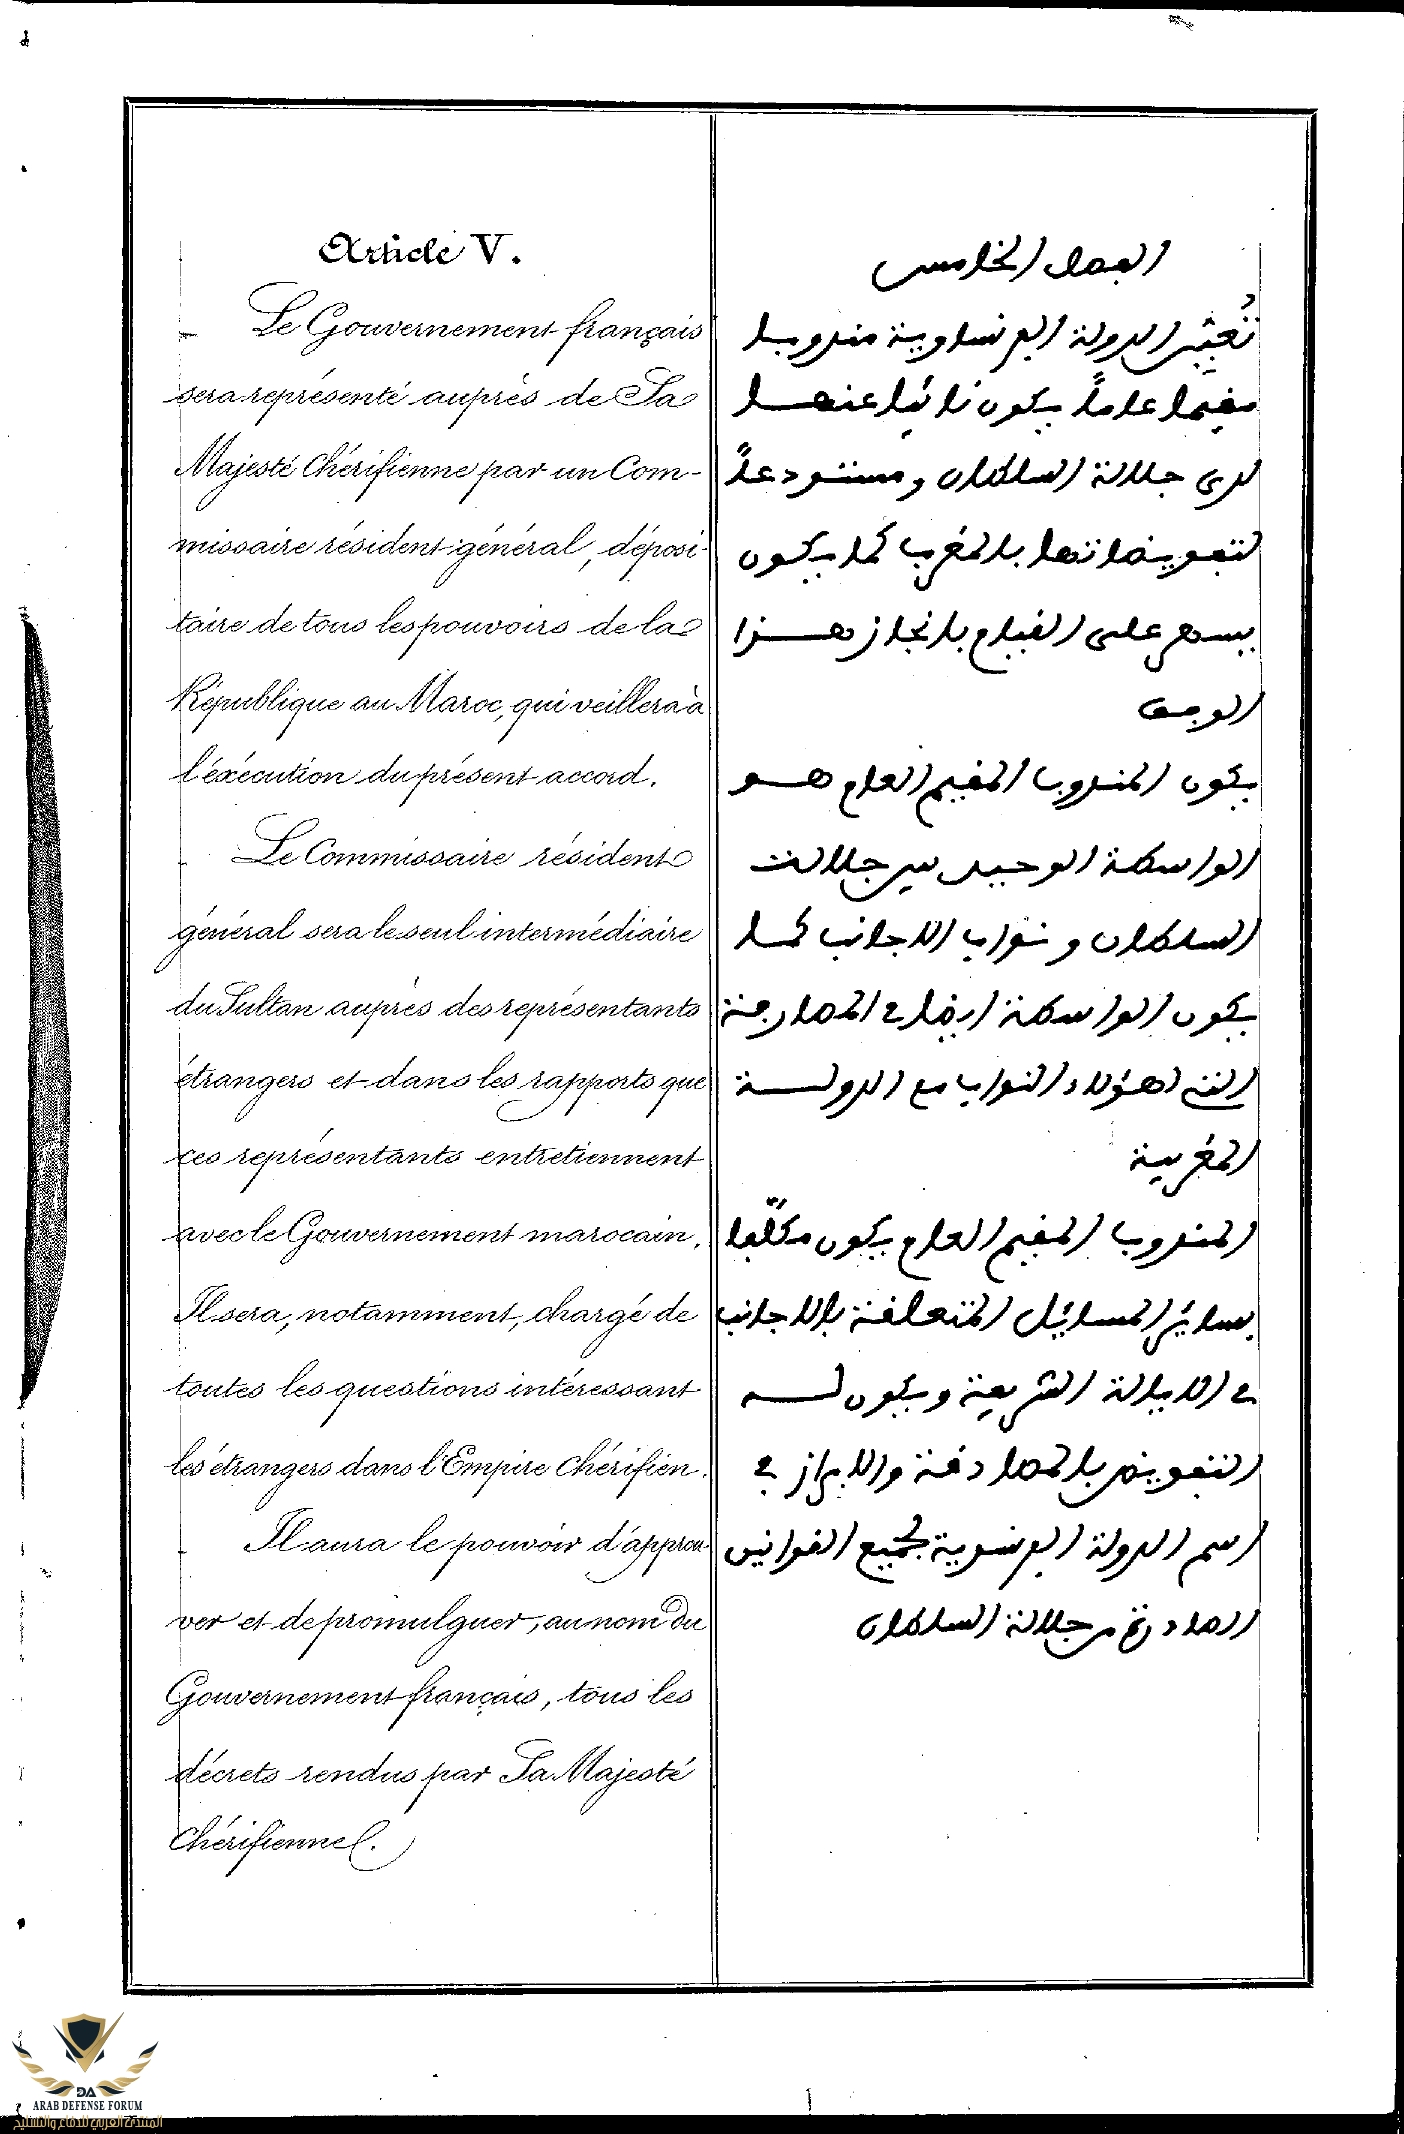 Article V.
Le Gouvernement français
sera représenté auprès de Sa
Majesté Chérifienne par un Com-
missaire résident général, déposi-
taire de tous les pouvoirs de la
République au Maroc, qui veillera à
l'éxécution du présent accord.
Le Commissaire résident
général sera le seul intermédiaire
du Sultan auprès des représentants
étrangers et dans les rapports que
ces représentants entretiennent
avec le Gouvernement marocain.
Il sera, notamment, chargé de
toutes les questions intéressant
les étrangers dans l'Empire Chérifien.
Il aura le pouvoir d'approu-
ver et de promulguer, au nom du
Gouvernement français, tous les
décrets rendus par Sa Majesté
Chérifienne.
الفصل الخامس
تُعيّن الدولة الفرنساوية مندوبا
مقيما عاماً يكون نائبا عنهـا
لدى جلالة السلطان ومستودعاً
لتفويضاتها بالمغرب كما يكون
يسهر على القيام بانجاز هــذا
الوفق
يكون المندوب المقيم العام هــو
الواسطة الوحيد بين جلالت
السلطان ونواب الاجانب كما
يكون الواسطة ايضا في المصارفة
التي لهؤلاء النواب مع الدولــة
المغربية
المندوب المقيم العام يكون مكلّفا
بسائر المسائل المتعلقة بالاجانب
في الايالة الشريفة ويكون لــه
التفويض بالمصادقة والابراز في
اسم الدولة الفرنسوية لجميع القوانين
الصادرة من جلالة السلطان
ARAB DEFENSE FORUM
المنتدى العربي للدفاع والتسليح